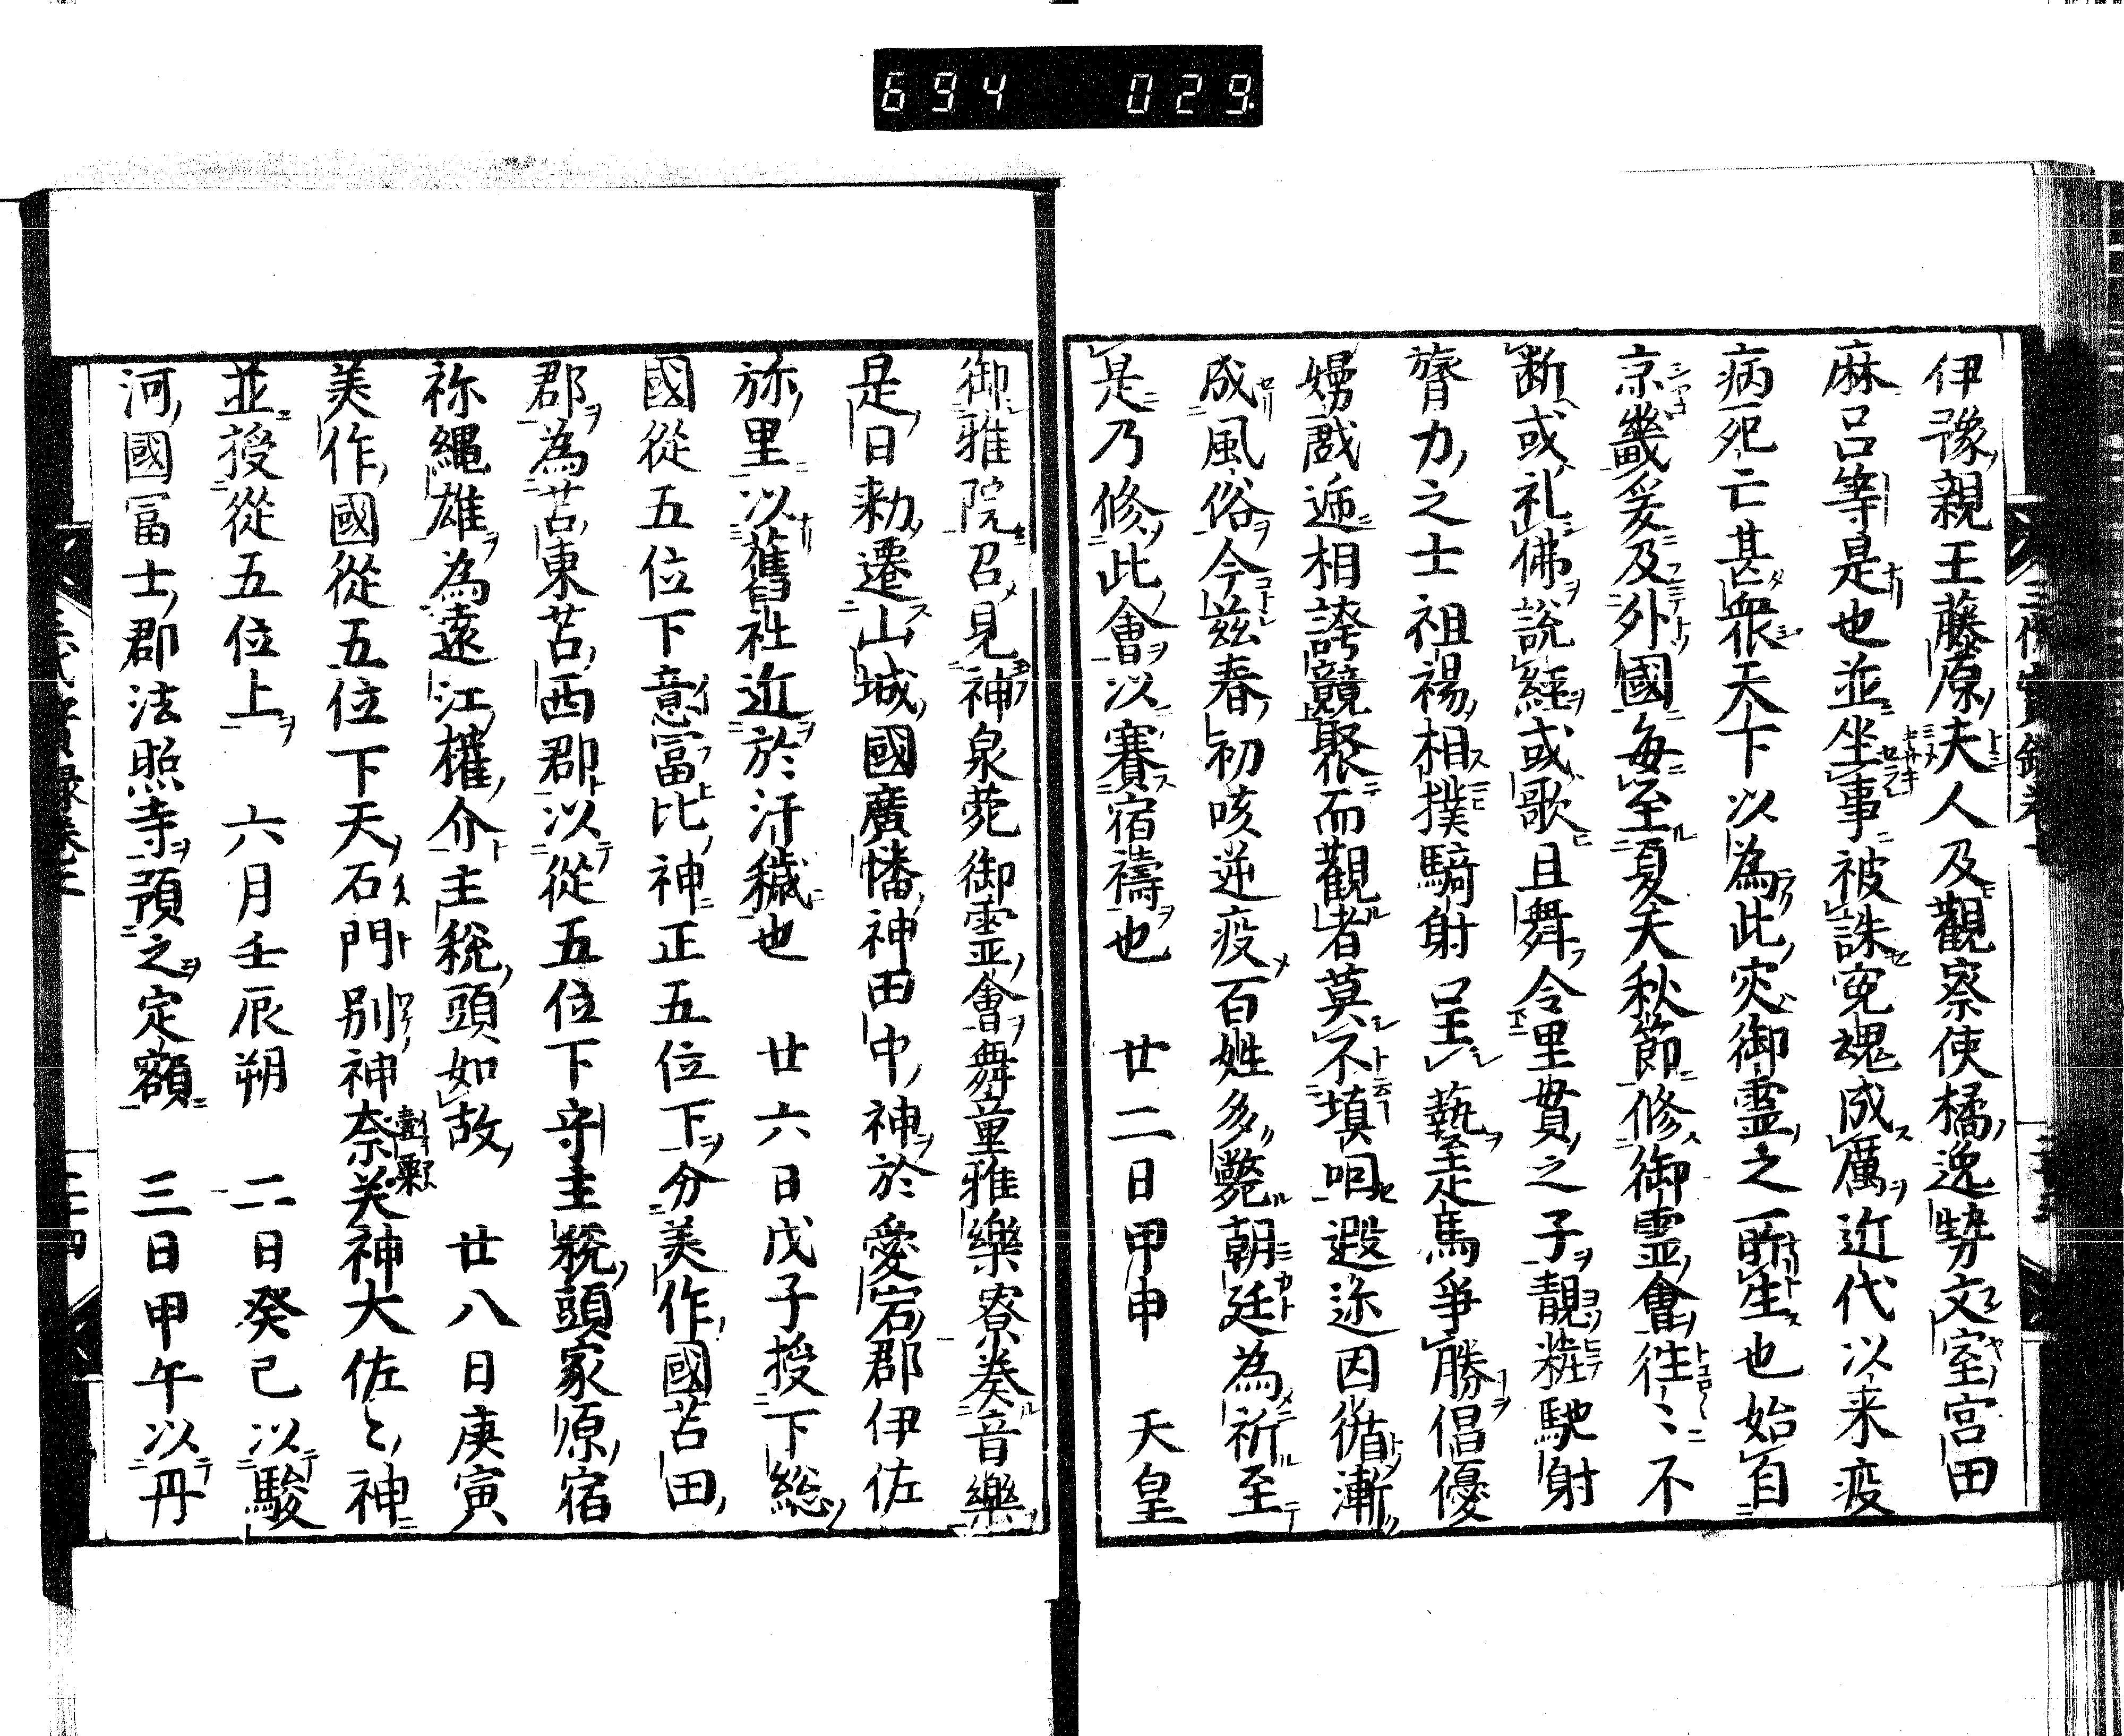 694 029
伊豫親王藤原夫人及觀察使橘逸勢文室宮田
麻呂等是也並坐事被誅寃魂成厲近代以来疫
病死亡甚衆天下以為此灾御霊之所生也始自
京畿爰及外國毎至夏天秋節修御霊會徃〻不
断或礼佛說經或歌且舞令里貫之子靚粧馳射
膂力之士袒裼相撲騎射呈藝走馬爭勝倡優
嫚戯逓相誇競聚而觀者莫不填咽遐迩因循漸
成風俗今玆春初咳逆疫百姓多斃朝廷為祈至
是乃修此會以賽宿禱也　廿二日甲申　天皇
御雅院召見神泉苑御霊會舞童雅樂寮奏音樂
是日勅遷山城國廣幡神田中神於愛宕郡伊佐
弥里以舊社近於汙穢也　廿六日戊子授下総
國従五位下意冨比神正五位下分美作國苫田
郡為苫東苫西郡以從五位下守主税頭家原宿
祢縄雄為遠江權介主税頭如故　廿八日庚寅
美作國從五位下天石門別神奈美神大佐〻神
並授從五位上　六月壬辰朔　二日癸巳以駿
河國冨士郡法照寺預之定額　三日甲午以丹